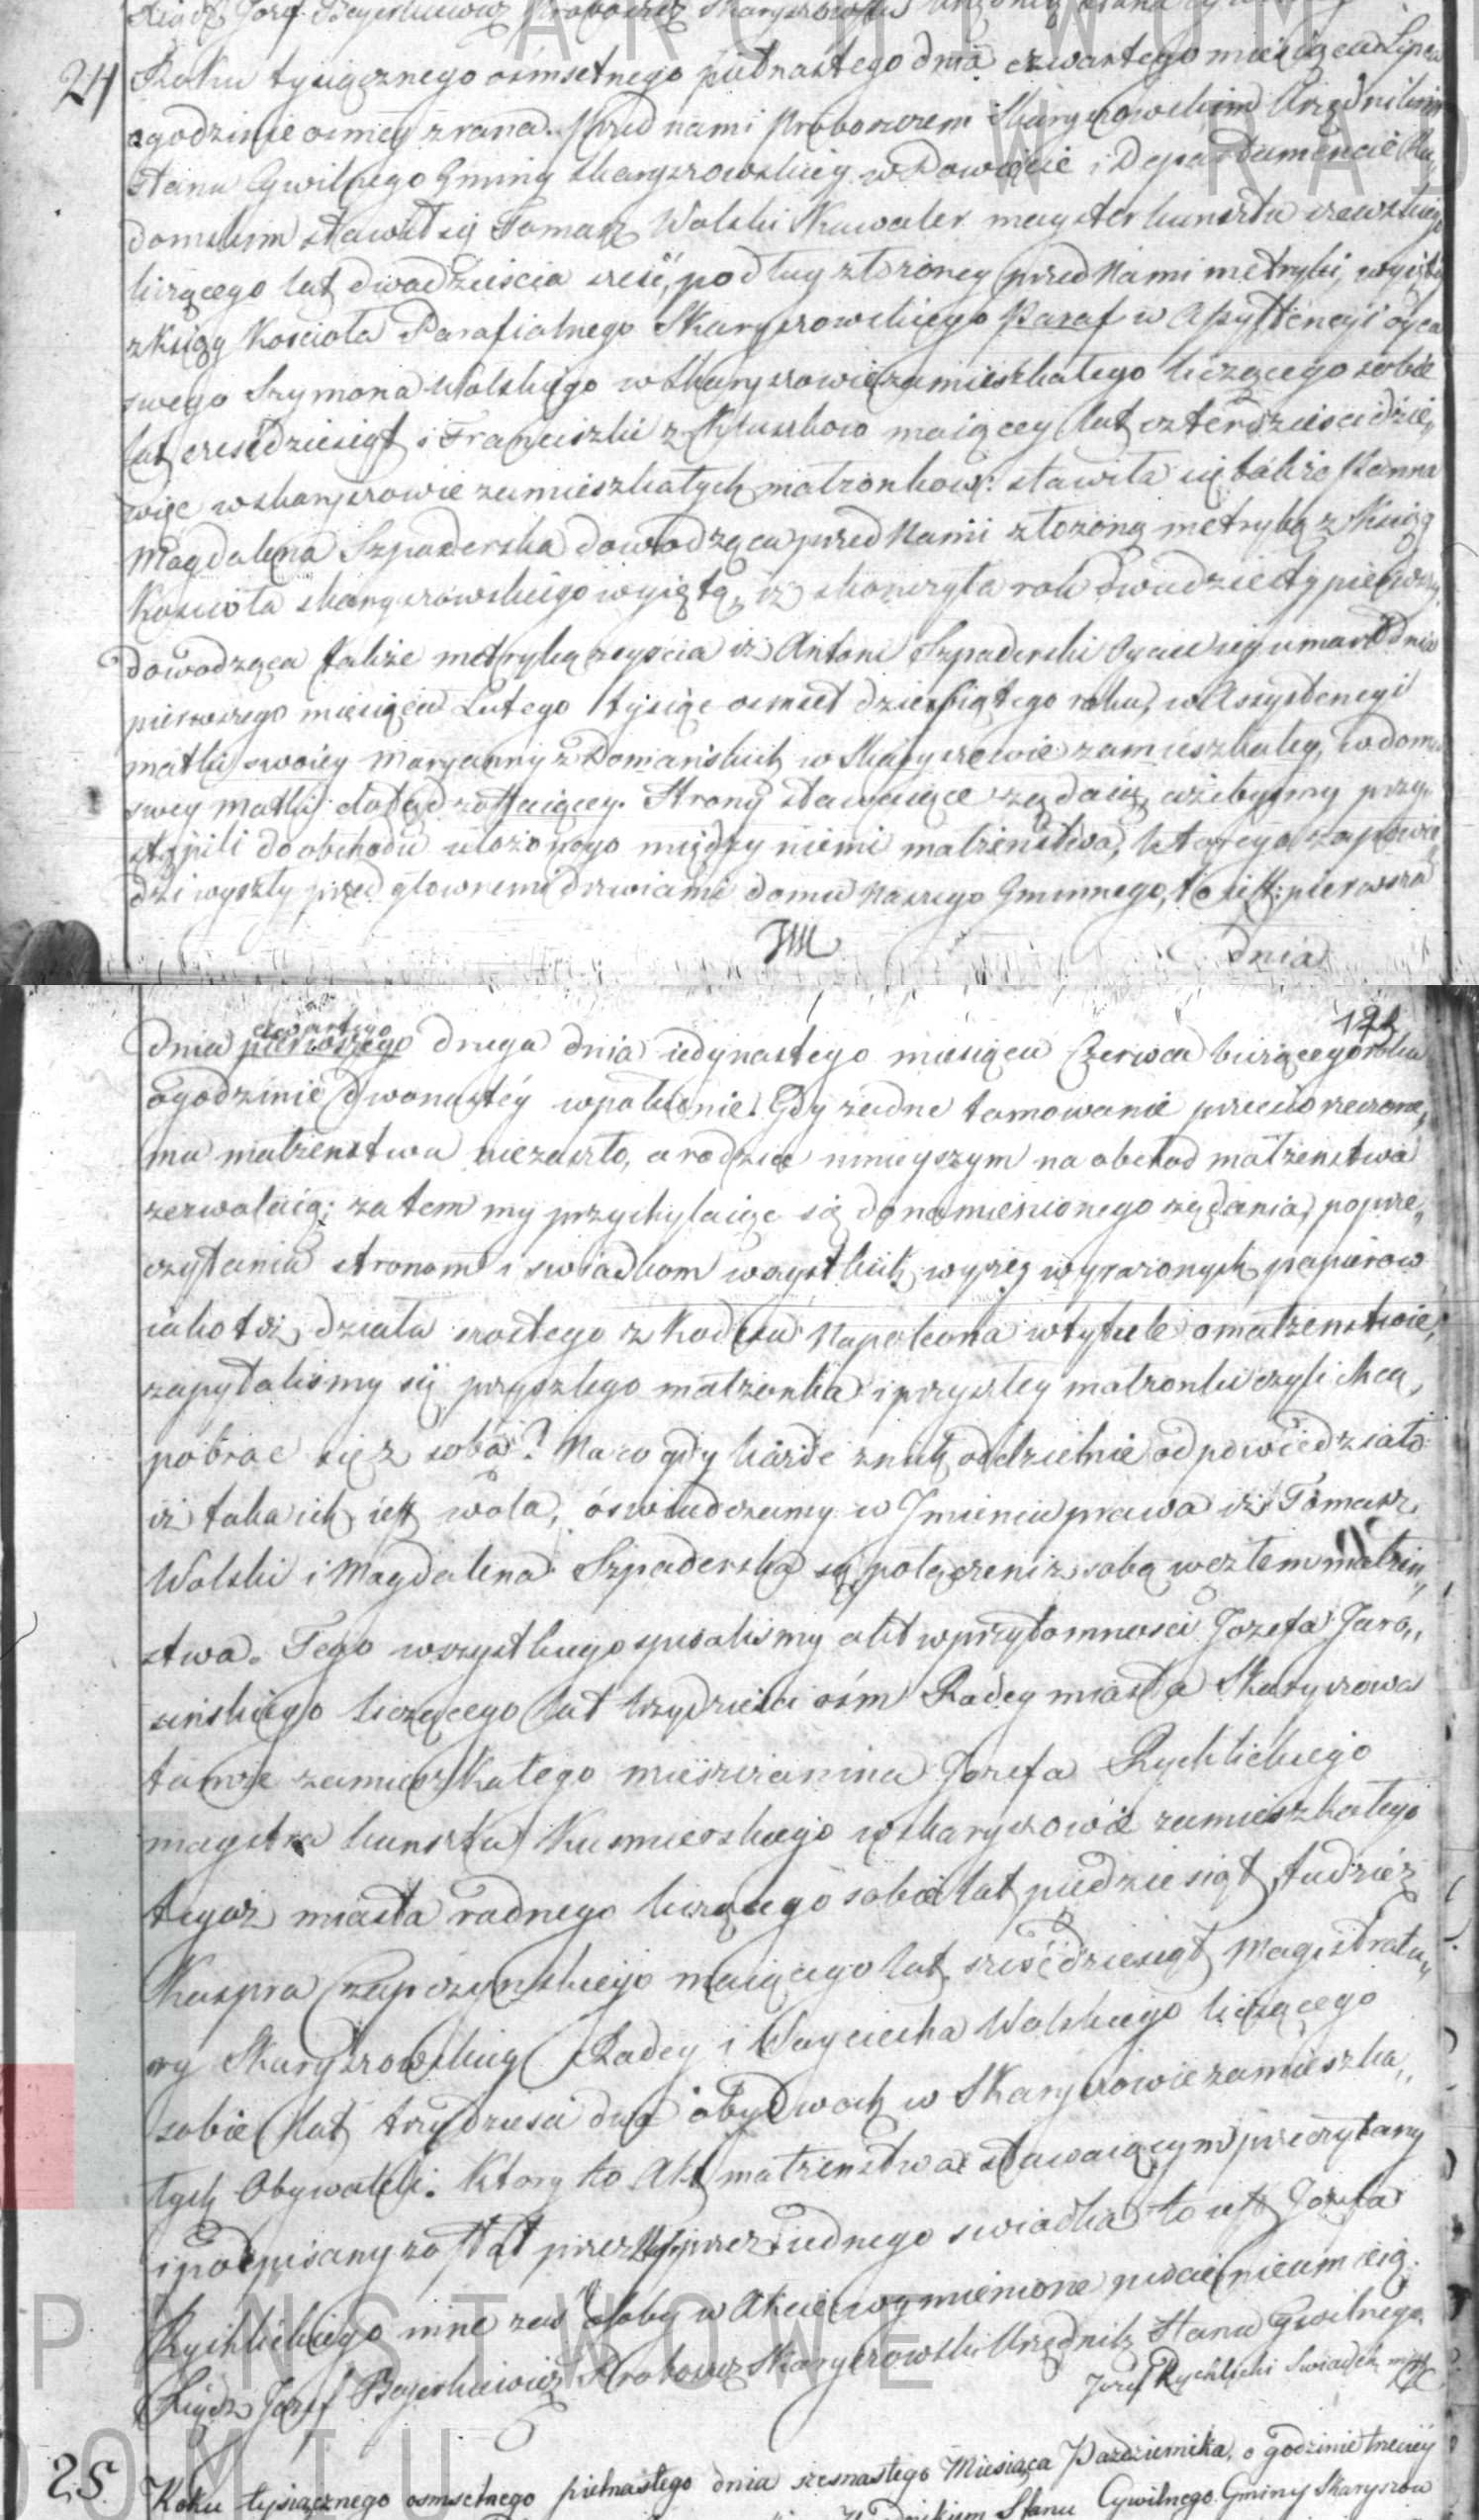 Xiądz Jozef Proboszcz Skaryszewski Urzędnik Stanu
ARCHIWUM
24
Roku tysiącznego osmsetnego piętnastego dnia czwartego miesiąca Lipca
W RAD
o godzinie osmey zrana. Przed nami Proboszczem Skaryszowskim Urzędnikiem
stanu Cywilnego Gminy Skaryszowskiey w Powiecie i Departamencie Ra„
domskim stawił się Tomasz Wolski Kawaler mayster kunsztu szewskiego
liczącego lat dwadziescia sześć, podług złożoney przed Nami metryki, wyięty
z ksiąg Kościoła Parafialnego Skaryszowskiego Paraf w Assystencyi oyca
swego Szymona Wolskiego w Skaryszowie zamieszkałego liczącego sobie
lat sześćdziesiąt i Franciszki z maiącey lat czterdziesci dzie„
więc w skaryszowie zamieszkałych małzonkow: stawiła się także Panna
Magdalena Szpaderska dowodząca przed Nami złożoną metryką z Ksiąg
Kosciola skaryszowskiego wyiętą, iż skonczyła rok dwudziesty pierwszy,
dowodząca także metryką zeyscia iż Antoni Szpaderski Oyciec iey umarł dnia
pierwszego miesiąca Lutego tysiąc osmset dziesiątego roku, w Assystencyi
matki swoiey Maryanny z Domańskich w Skaryszewie zamieszkałey, w domu
swey Matki dotąd zostaiącey. Strony stawaiące żądaią, ażebysmy przy„
stąpili do obchodu ułożonego między niemi małżeństwa, ktorego zapowie„
dzi wyszły przed głownemi drzwiami domu Naszego Gminnego, to iest: pierwsza
dnia
122
czwartego
dnia pierwszego druga dnia iedynastego miesiąca Czerwca bieżącego roku
o godzinie dwonastéy w południe. Gdy żadne tamowanie przeciw rzeczone„
mu małżenstwu niezaszło, a rodzice ninieyszym na obchod małżenstwa
zezwalaią; zatem my przychylaiąc się do namienionego żądania, po prze„
czytaniu stronom i swiadkom wszystkich wyżey wyrażonych papierow
iako też działu szostego z Kodexu Napoleona w tytule o małżenstwie,
zapytalismy się przyszłego małżonka i przyszłey małżonki czyli chcą,
pobrac się z sobą? Na co gdy każde z nich oddzielnie odpowiedziało
iż taka ich iest wola, oswiadczamy w Jmieniu prawa iż Tomasz
Wolski i Magdalena Szpaderska są połączeni z sobą węzłem małżen„
stwa. Tego wszystkiego spisalismy akt w przytomnosci Jozefa Jaro„
sinskiego liczącego lat trzydziesci osm Radcy miasta Skaryszowa
tamże zamieszkałego mieszczanina Jozefa Rychlickiego
maystra kunsztu Kusmierskiego w skaryszowie zamieszkałego
tegoż miasta radnego liczącego sobie lat piędziesiąt, tudzież
Kaspra maiącego lat szescdziesiąt Magistratu„
ry Skaryszowskiey Radcy i Woyciecha Wolskiego liczącego
sobie lat trzydziesci dwa obydwoch w Skaryszowie zamieszka„
łych Obywateli. Ktory to Akt małżenstwa stawaiącym przeczytany
i podpisany został przez Nas i przez iednego swiadka to iest Jozefa
Rychlickiego inne zas osoby w Akcie wymienione pisać nieumieią.
PAŃSTWOWE
Xiądz Jozef Proboszcz Skaryszowski Urzędnik Stanu Cywilnego
Jozef Rychlicki Swiadek
DOMIU
25.
Roku tysiącznego osmsetnego piętnastego dnia szesnastego Miesiąca Pazdziernika, o godzinie trzeciéy
Stanu Cywilnego Gminy Skaryszow